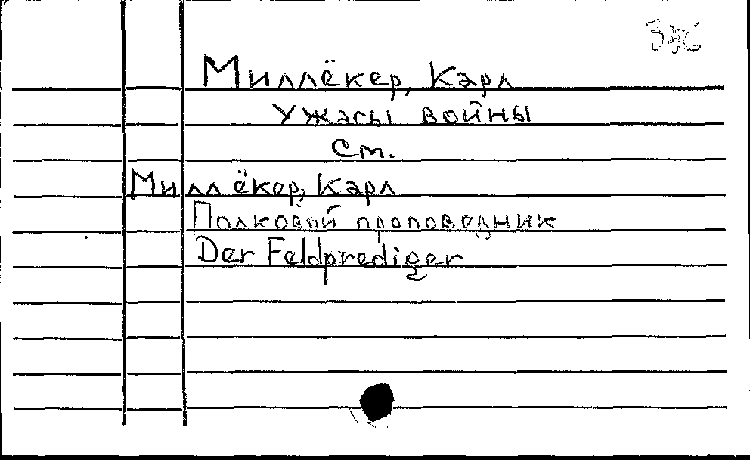 Миллёкер, Карл
Ужасы войны
См.
Миллёкер, Карл
Полковой проповедник
Der Feldprediger